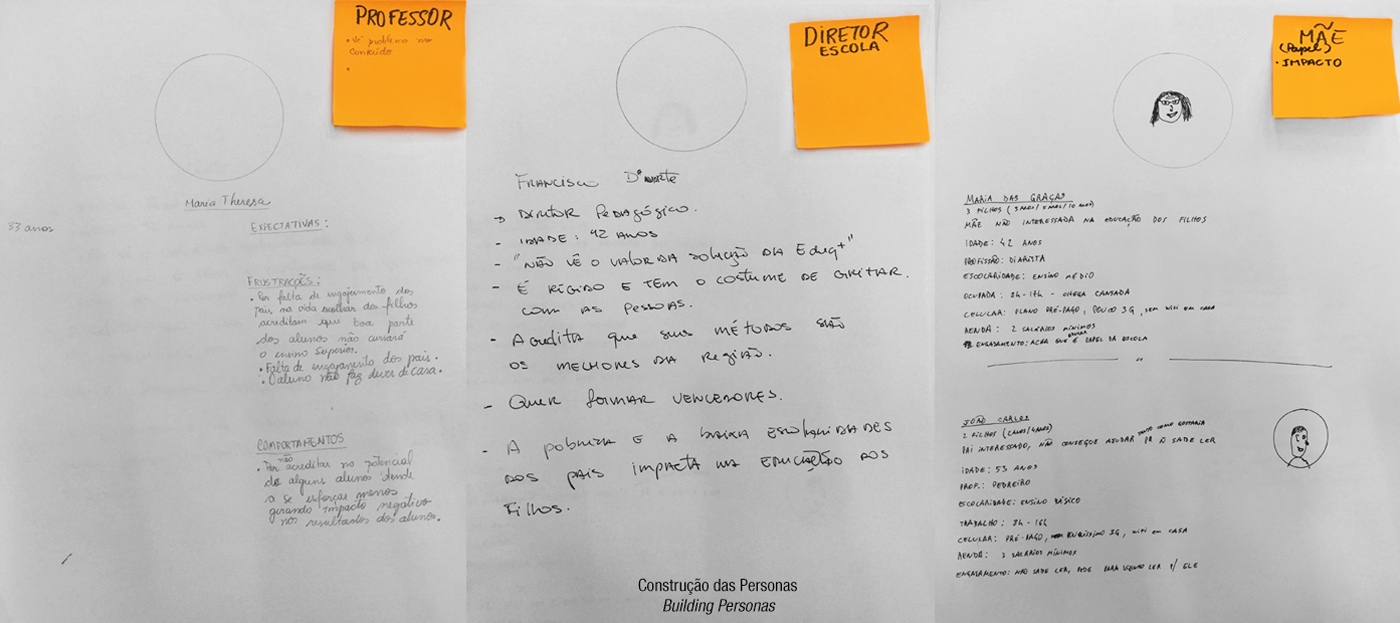 PROFESSOR
• Vê problema no
conteúdo
•
Maria Theresa
33 anos
EXPECTATIVAS:
FRUSTRAÇÕES:
• Por falta de engajamento dos
pais na vida escolar dos filhos
acreditam que boa parte
dos alunos não cursará
o ensino superior.
• Falta de engajamento dos pais.
• O aluno não faz dever de casa.
COMPORTAMENTOS
não
• Por acreditar no potencial
de alguns alunos tende
a se esforçar menos
gerando impacto negativo
nos resultados dos alunos.
DIRETOR
ESCOLA
FRANCISCO
→ DIRETOR PEDAGÓGICO.
- IDADE: 42 ANOS
- "NÃO VÊ O VALOR DA SOLUÇÃO DA Eduq+"
- É RÍGIDO E TEM O COSTUME DE GRITAR
COM AS PESSOAS.
- Acredita que seus MÉTODOS SÃO
OS MELHORES DA REGIÃO.
- QUER FORMAR VENCEDORES.
- A pobreza E A baixa Escolaridades
DOS PAIS IMPACTA NA EDUCAÇÃO DOS
Filhos.
MÃE
(Papel)
• IMPACTO
MARIA DAS GRAÇAS
3 FILHOS
MÃE NÃO INTERESSADA NA EDUCAÇÃO DOS FILHOS
IDADE: 42 ANOS
PROFISSÃO: DIARISTA
ESCOLARIDADE: ENSINO MÉDIO
OCUPADA: 8h - 17h - CHEGA CANSADA
CELULAR: PLANO PRÉ-PAGO, POUCO 3G, SEM WIFI EM CASA
RENDA: 2 SALÁRIOS MÍNIMOS
ENGAJAMENTO: ACHA QUE É PAPEL DA ESCOLA
JOÃO CARLOS
2 FILHOS
TANTO COMO GOSTARIA
PAI INTERESSADO, NÃO CONSEGUE AJUDAR Ñ SABE LER
IDADE: 53 ANOS
PROF.: PEDREIRO
ESCOLARIDADE: ENSINO BÁSICO
TRABALHO: 9h - 16h
CELULAR: PRÉ-PAGO, 3G, WIFI EM CASA
RENDA: 3 SALÁRIOS MÍNIMOS
ENGAJAMENTO: NÃO SABE LER, PEDE PARA LER P/ ELE
Construção das Personas
Building Personas